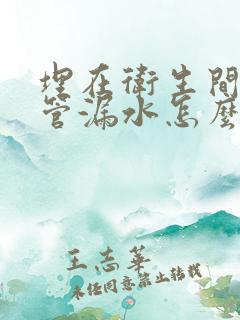 埋在衛生間
管漏水怎麼
王志華
未经同意禁止转载